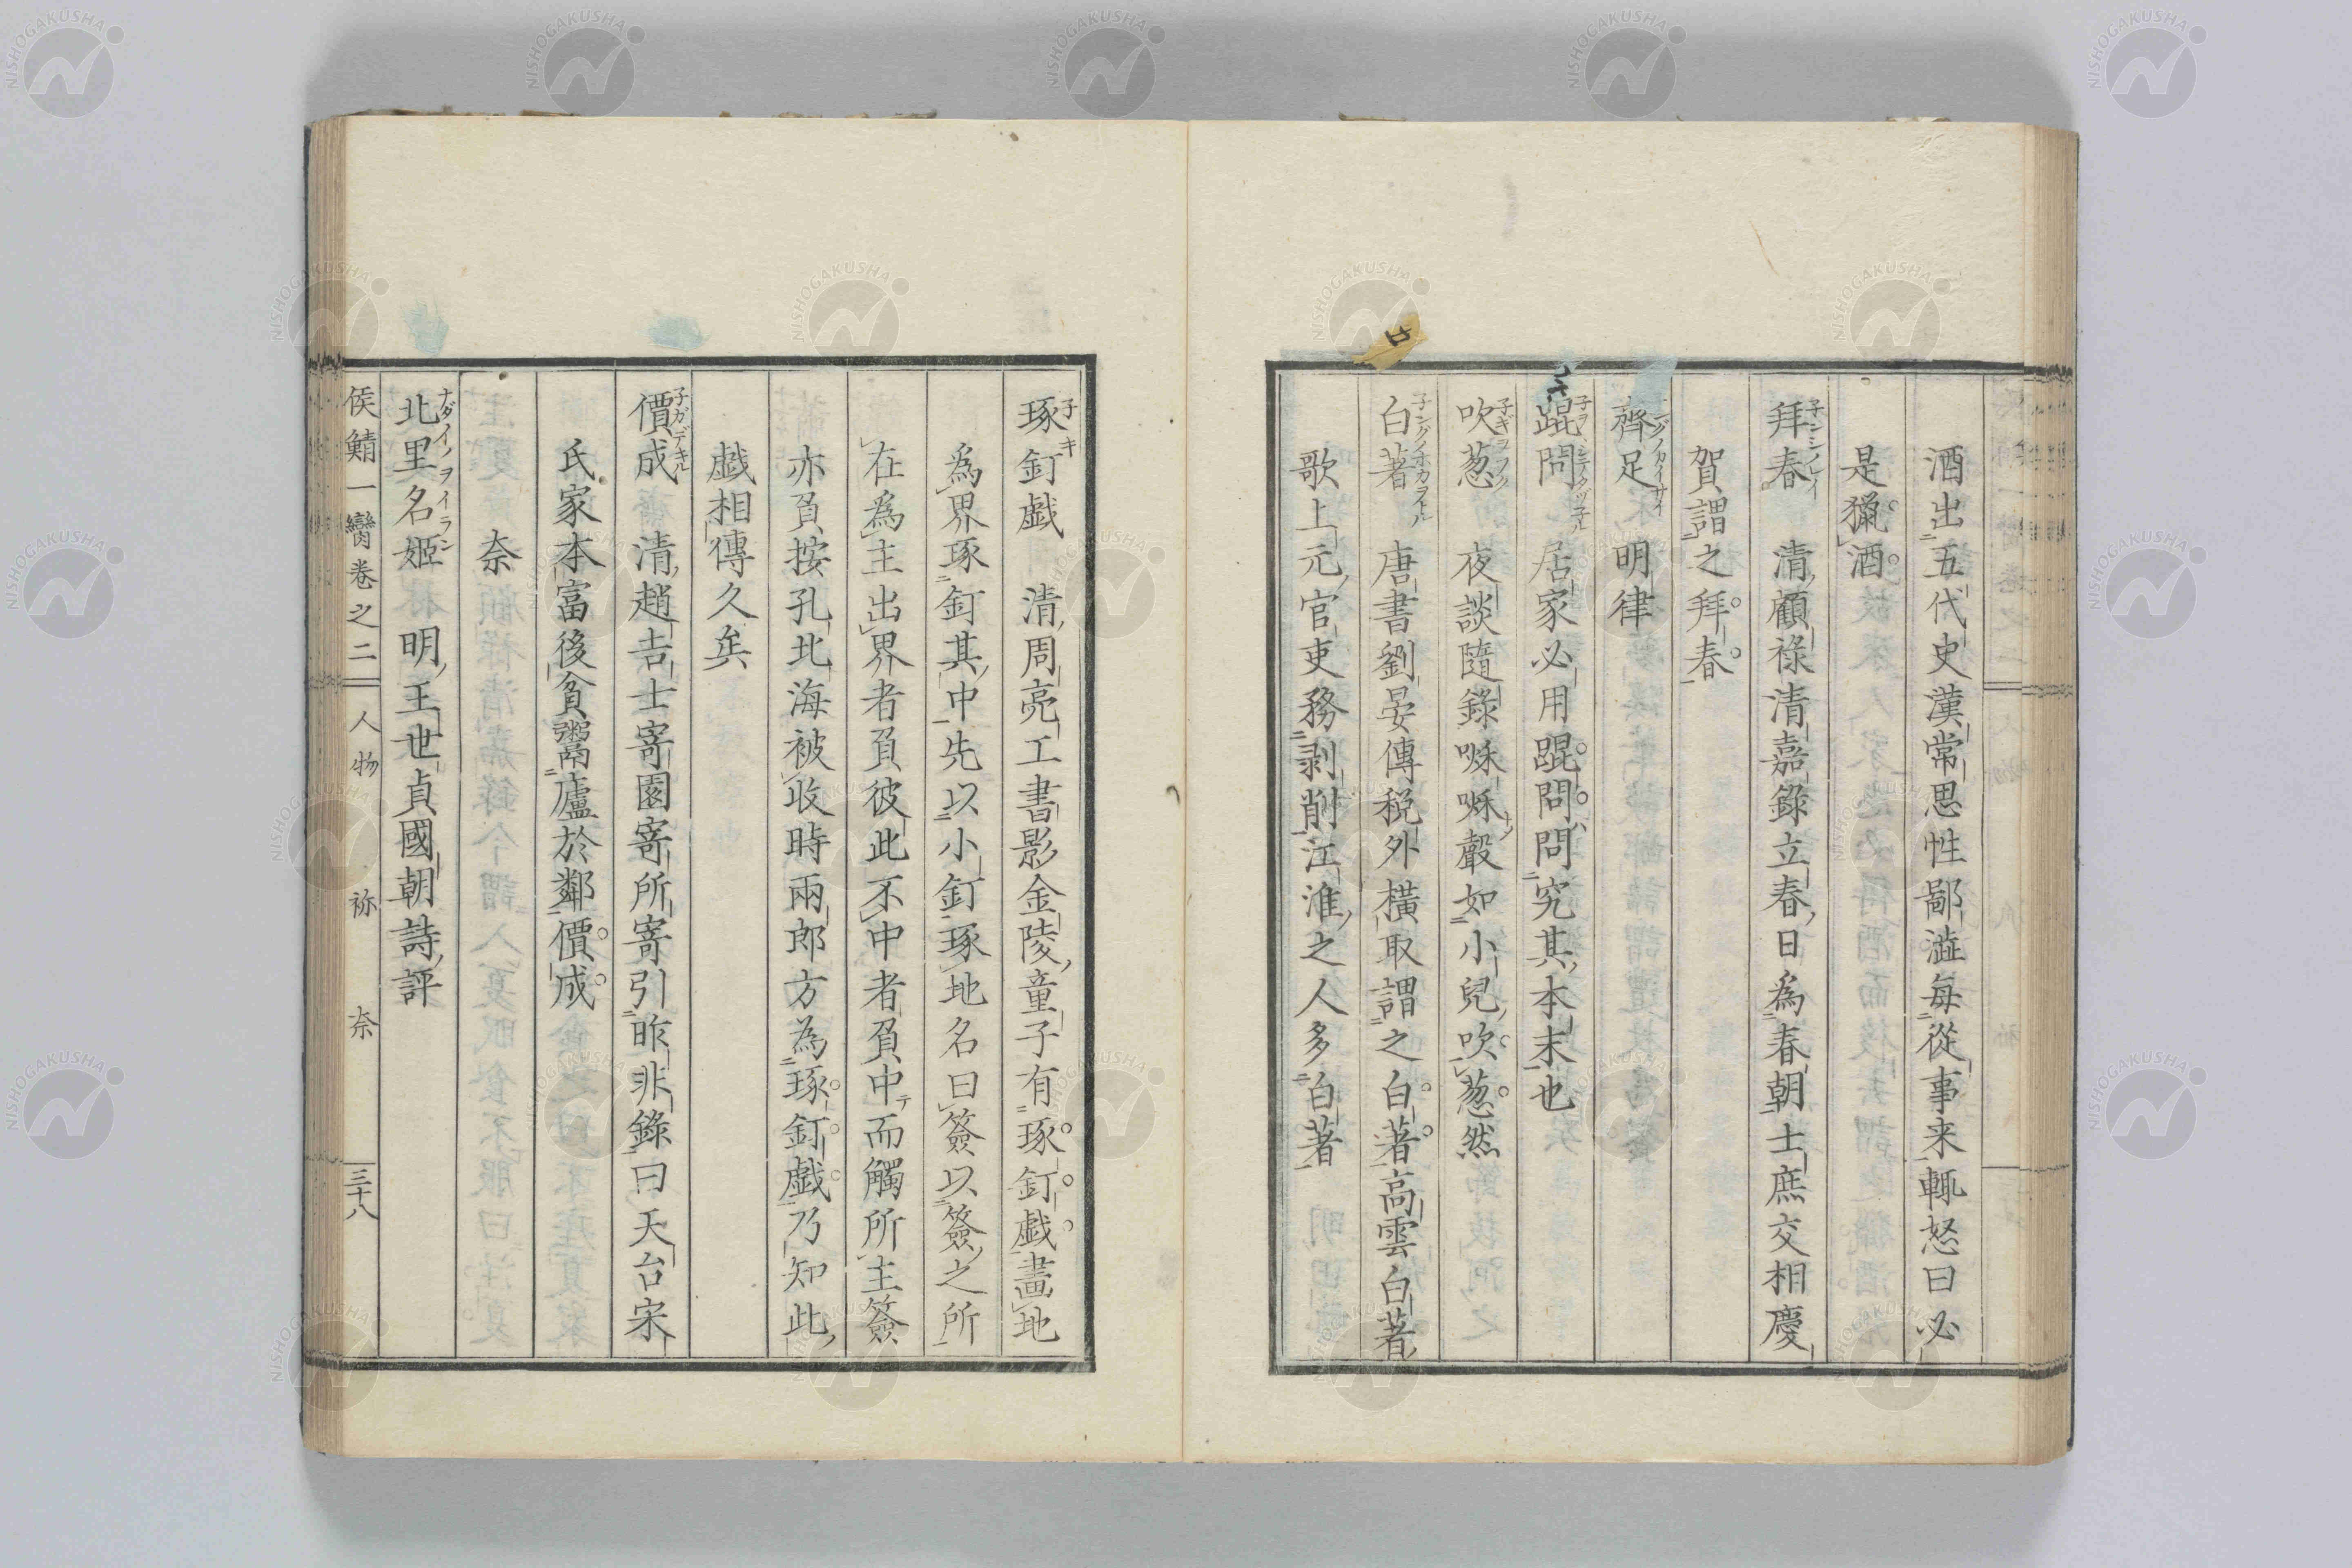 酒出五代史漢常思性鄙澁每從事来輒怒曰必
是獵酒
拜春 清顧禄清嘉錄立春日為春朝士庶交相慶
賀謂之拜春
齊足 明律
踞問 居家必用踞問問究其本末也
吹葱 夜談隨錄咻咻聲如小兒吹葱然
白著 唐書劉晏傳税外橫取謂之白著高雲白著
歌上元官吏務剥削江淮之人多白著
琢釘戯 清周亮工書影金陵童子有琢釘戯畫地
為界琢釘其中先以小釘琢地名曰簽以簽之所
在為主出界者負彼此不中者負中而觸所主簽
亦負按孔北海被收時兩郎方為琢釘戯乃知此
戯相傳久矣
價成 清趙吉士寄園寄所寄引昨非錄曰天台宋
氏家本富後貧鬻廬於鄰價成
奈
北里名姬 明王世貞國朝詩評
侯鯖一臠卷之二 人物 祢 奈 三十八